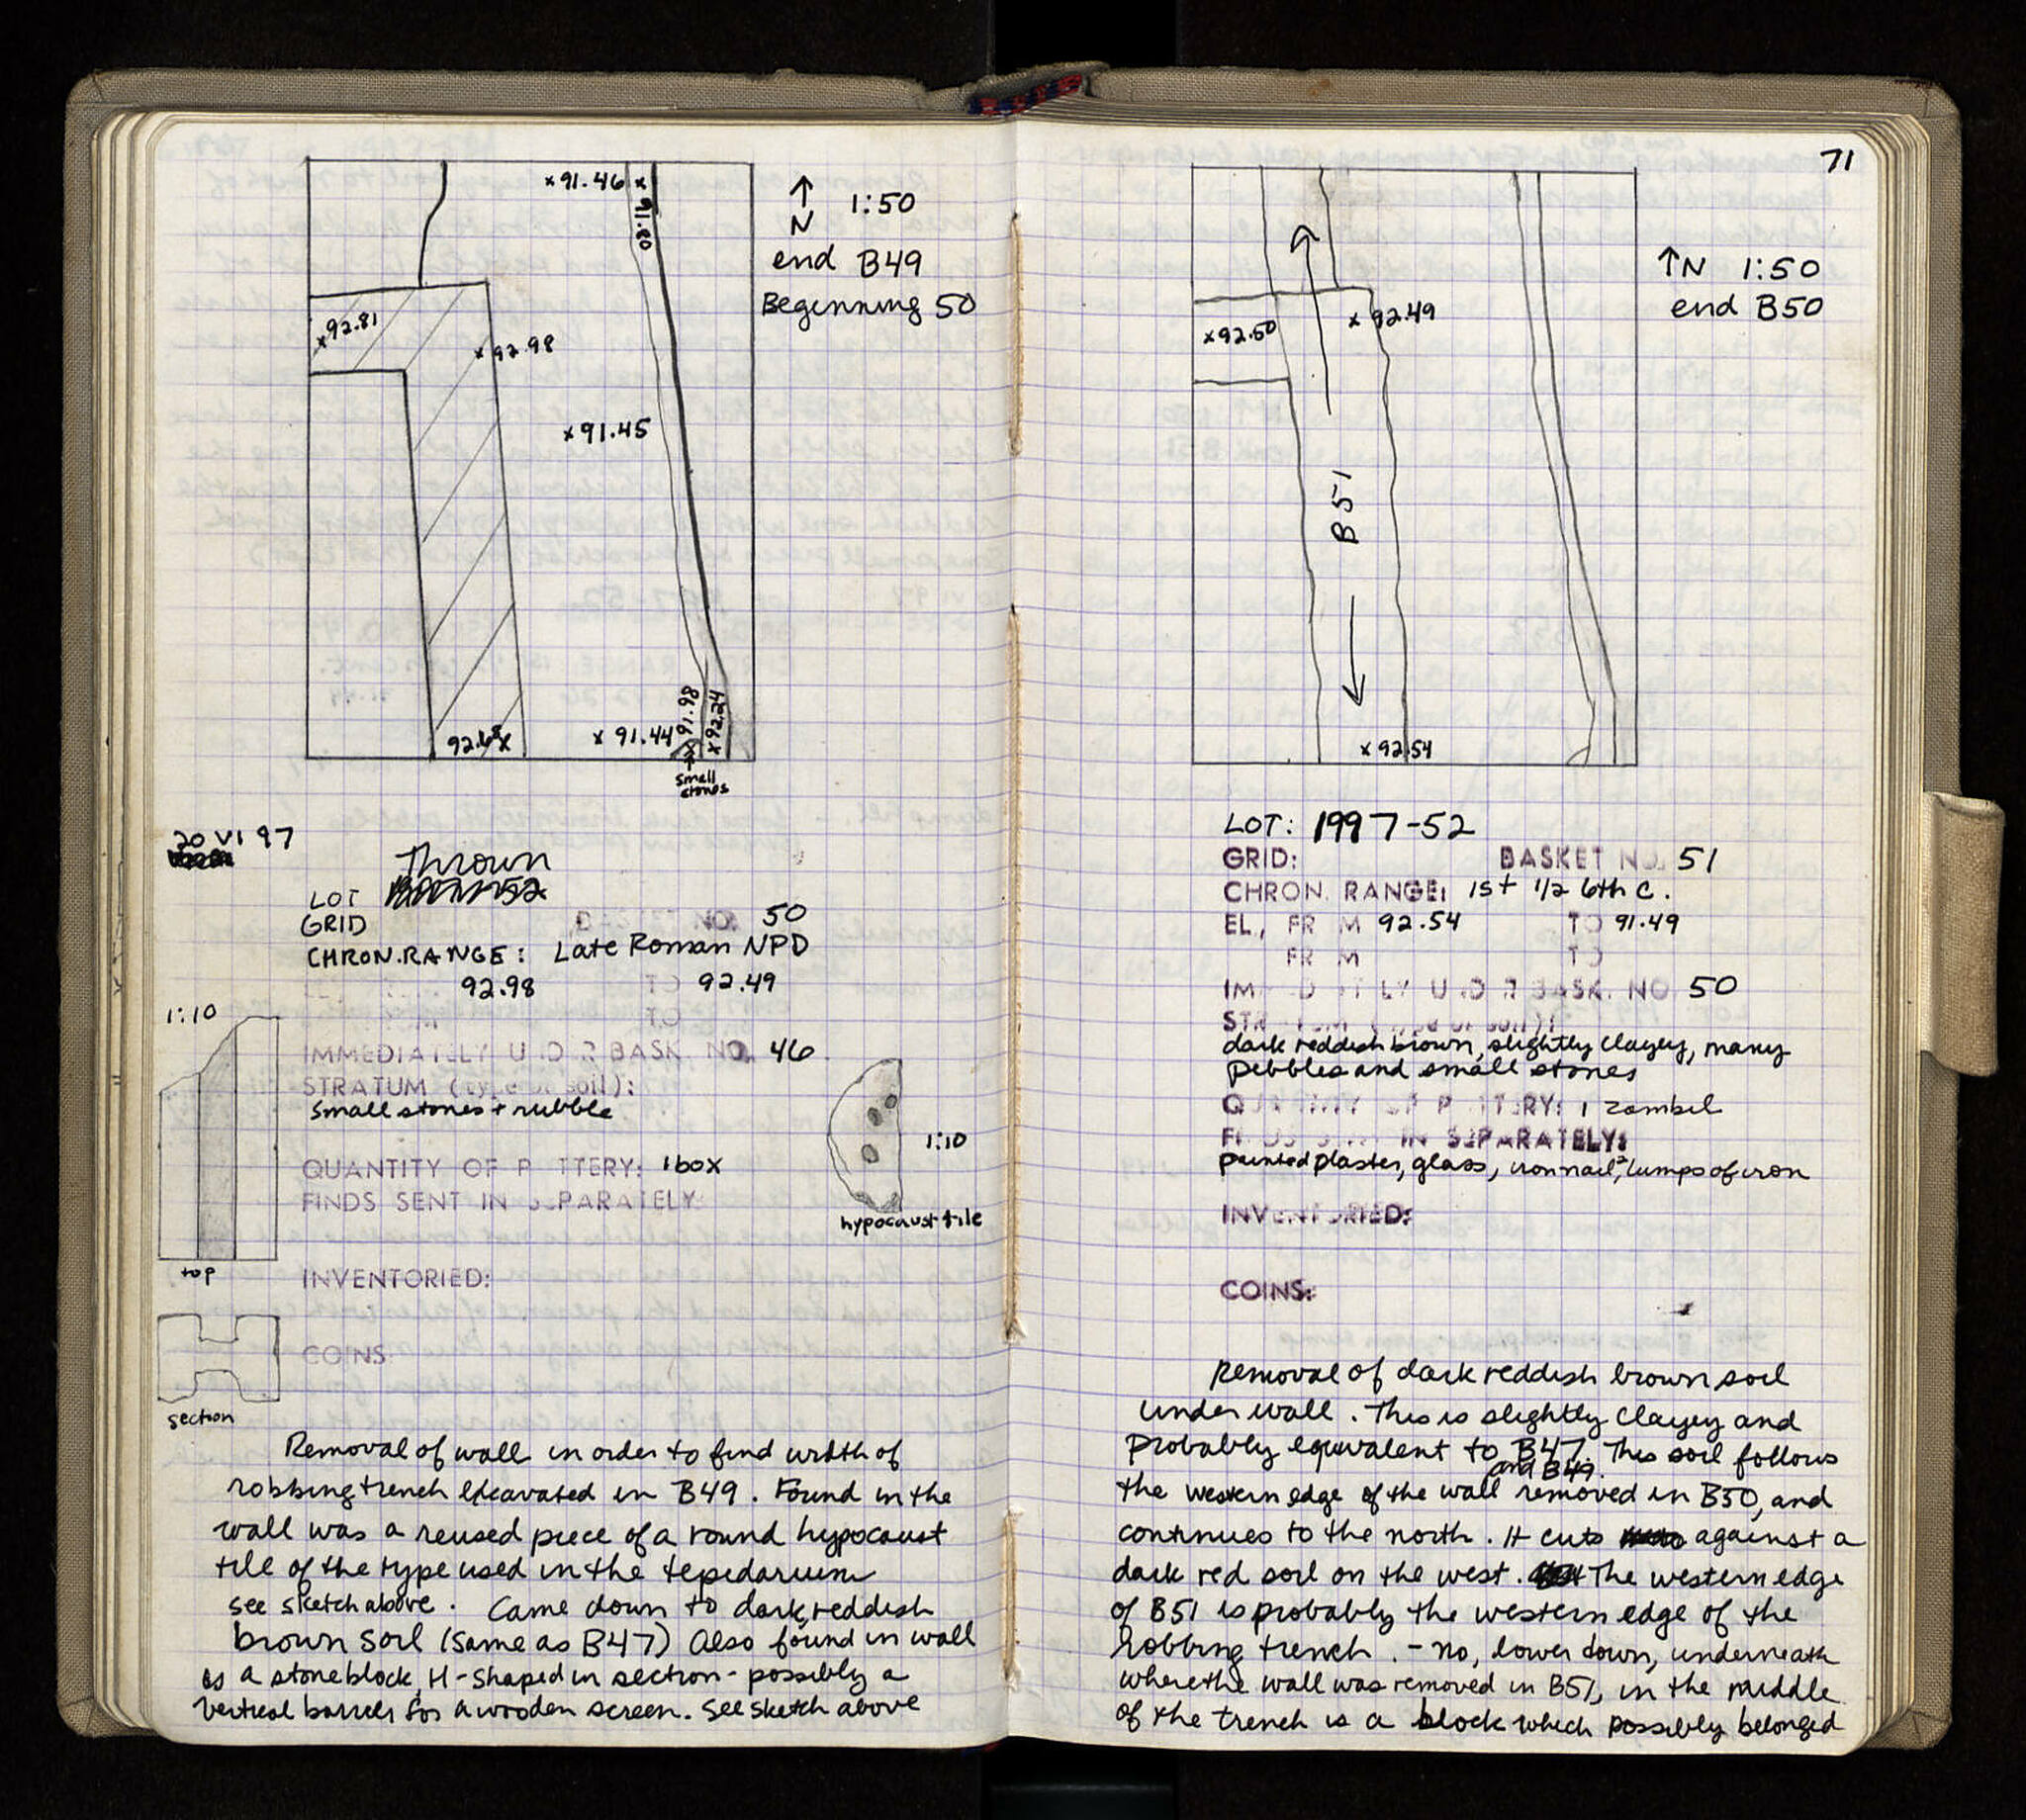 ×91.46 ×
91.80
↑
N
1:50
end B49
Beginning 50
×92.81
×92.98
×91.45
92.68×
×91.44
91.98
×92.24
small
stones
20 VI 97
Thrown
LOT
GRID
BASKET NO. 50
CHRON.RANGE: Late Roman NPD
92.98 TO 92.49
TO
1:10
IMMEDIATELY U D R BASK NO. 46
STRATUM (type of soil):
small stones + rubble
1:10
QUANTITY OF P TTERY: 1 box
FINDS SENT IN SEPARATELY
hypocaust tile
top
INVENTORIED:
COINS
section
Removal of wall in order to find width of
robbing trench excavated in B49. Found in the
wall was a reused piece of a round hypocaust
tile of the type used in the tepidarium
see sketch above. Came down to dark, reddish
brown soil (same as B47) Also found in wall
is a stone block, H-shaped in section - possibly a
vertical for a wooden screen. See sketch above
71
↑N 1:50
end B50
×92.50
×92.49
B51
×92.54
LOT: 1997-52
GRID: BASKET NO. 51
CHRON. RANGE: 1st 1/2 6th C.
EL., FR M 92.54 TO 91.49
FR M TO
IM D T LY U D R BASK. NO 50
STRATUM (type of soil):
dark reddish brown, slightly clayey, many
pebbles and small stones
QUANTITY OF P TTERY: 1 zambil
FINDS SENT IN SEPARATELY:
painted plaster, glass, iron nail, 2 lumps of iron
INVENTORIED:
COINS:
Removal of dark reddish brown soil
under wall. This is slightly clayey and
probably equivalent to B47. This soil follows
and B49.
the western edge of the wall removed in B50, and
continues to the north. It cuts against a
dark red soil on the west. The western edge
of B51 is probably the western edge of the
robbing trench. - no, lower down, underneath
where the wall was removed in B51, in the middle
of the trench is a block which possibly belonged